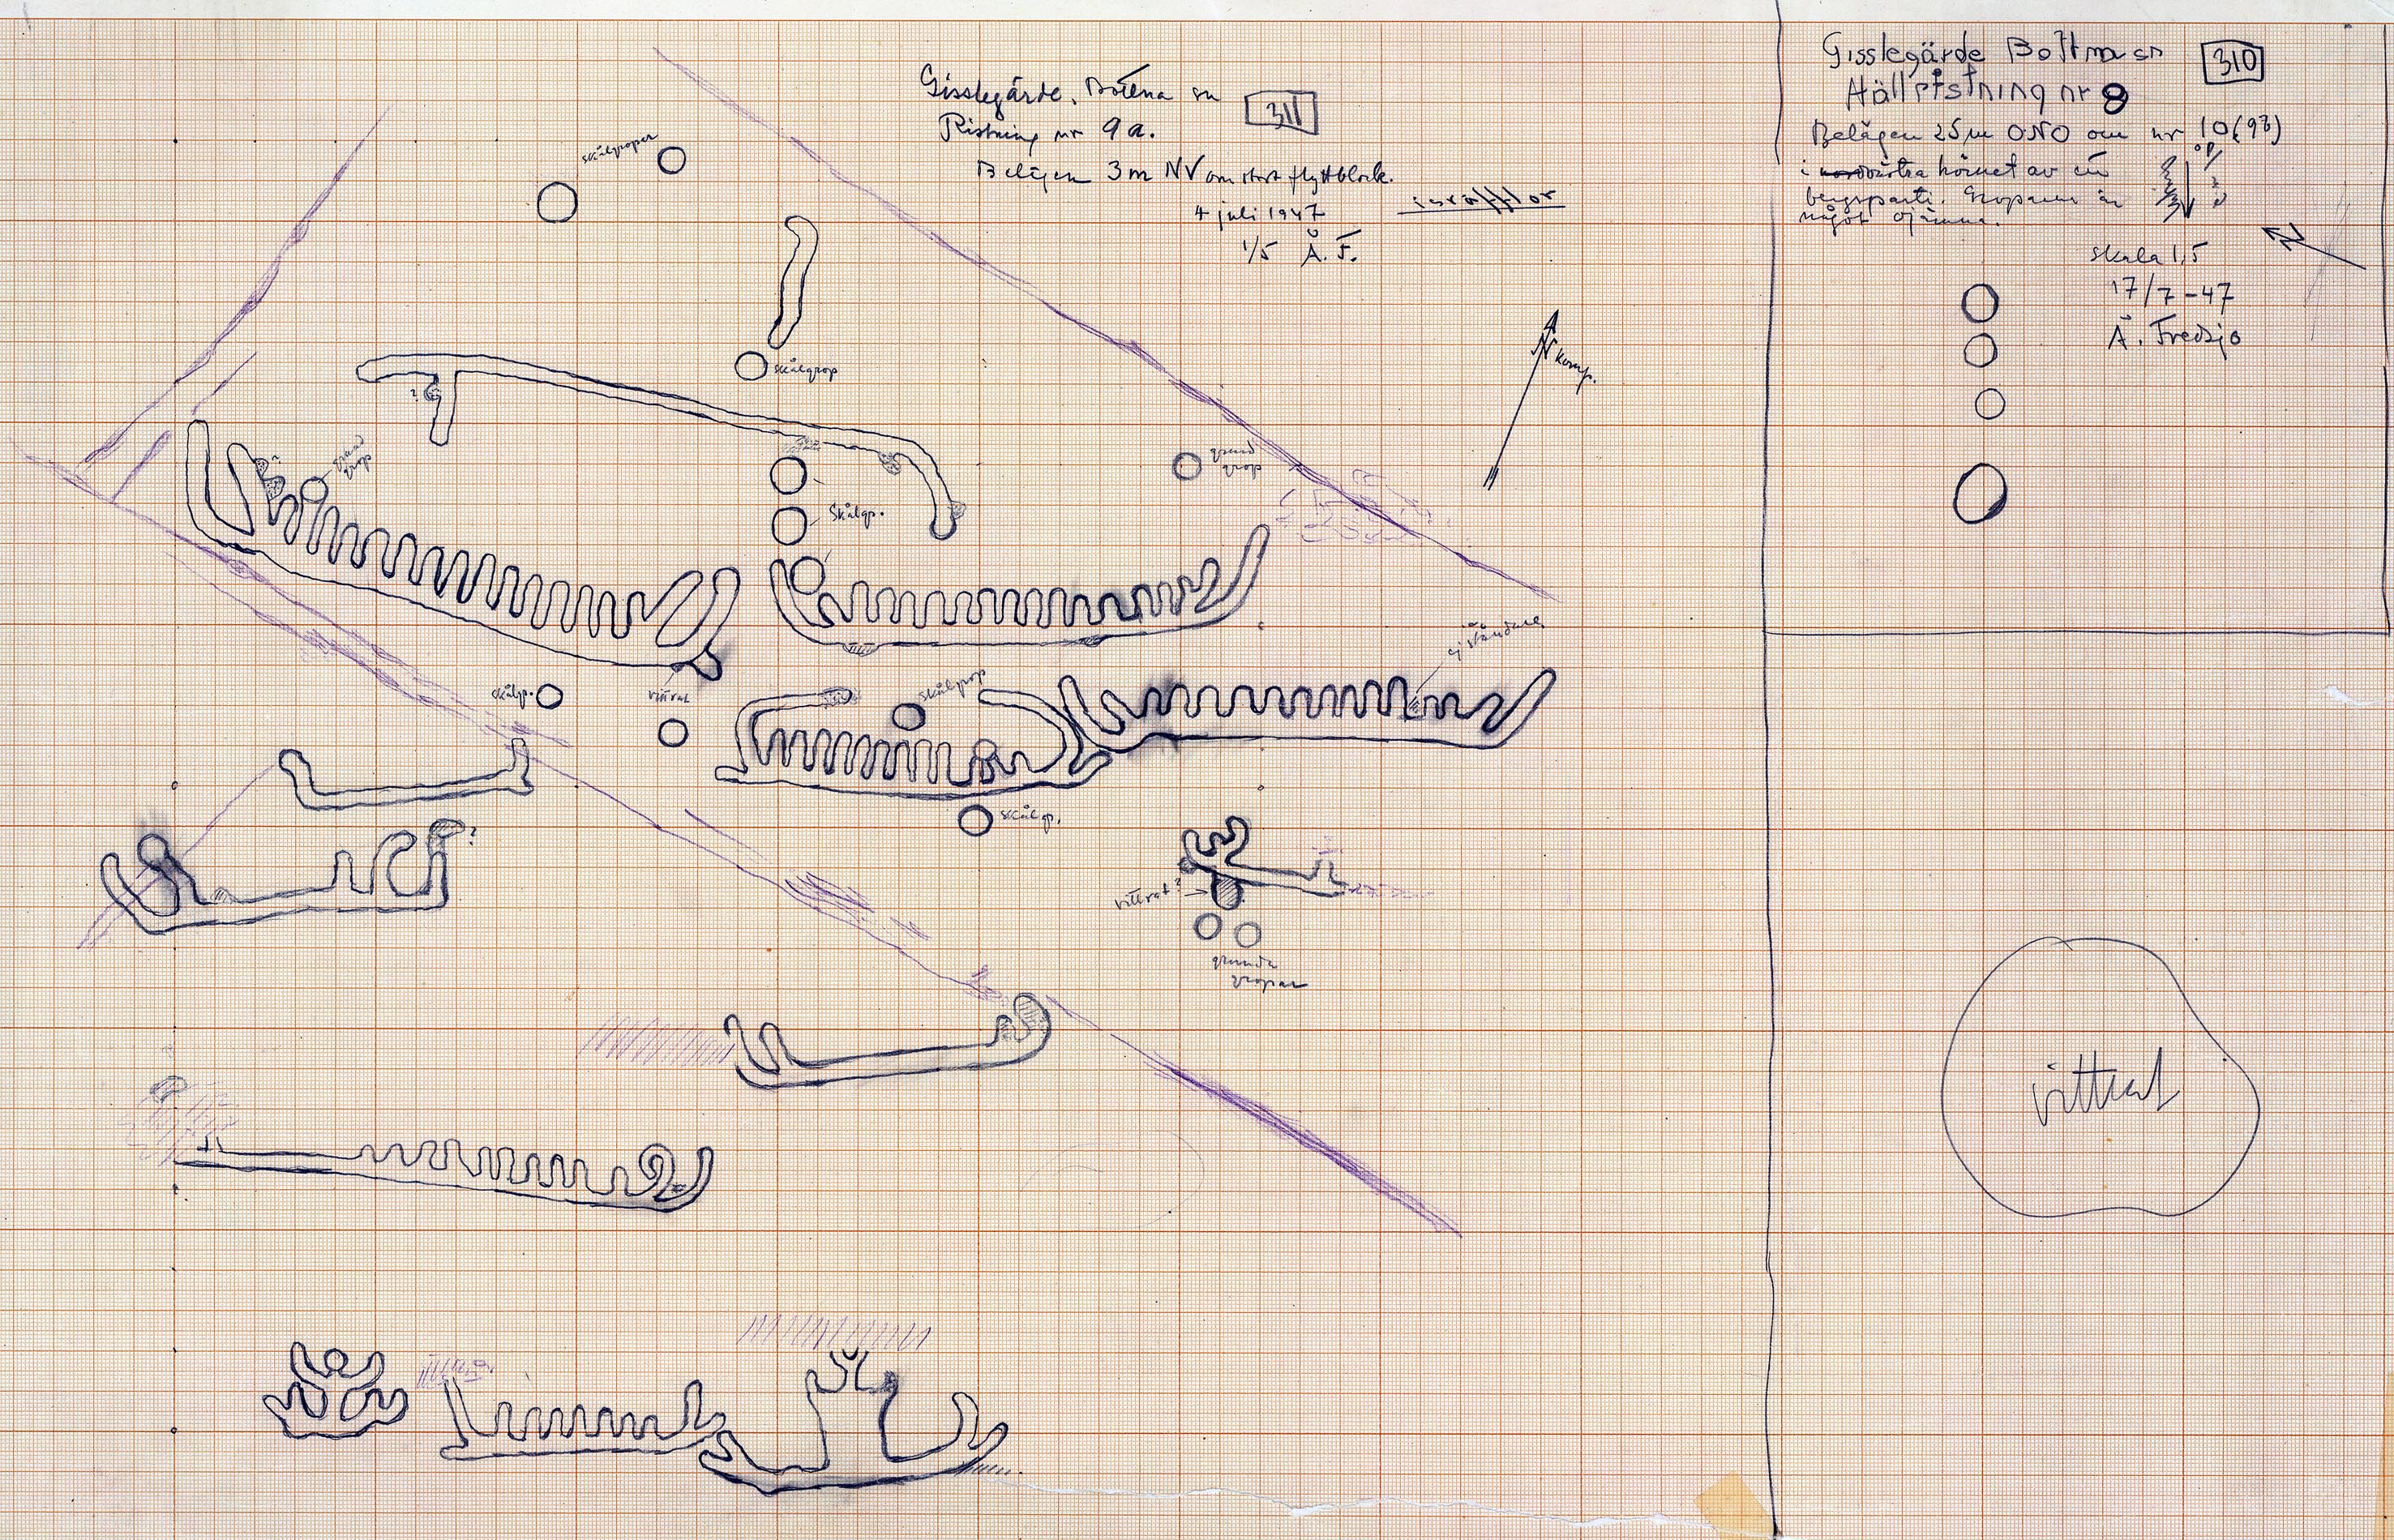 Gisslegärde, Bottna sn 311
Ristning nr 9a.
Belägen 3m NV om stort flyttblock.
4 juli 1947
1/5 Å. F.
skålgropar
skålgrop
?
grund
grop
Skålgp.
grund
grop
N komp.
skålgp.
vittrat
skålgrop
ej ständare
skålgp.
?
vittrat?
grunda
gropar
Gisslegärde Bottna sn 310
Hällristning nr 8
Belägen 25 m ONO om nr 10(9b)
i hörnet av en
bergsparti. Groparna är
något ojämna.
N
skala 1,5
17/7-47
Å. Fredsjö
vittrat